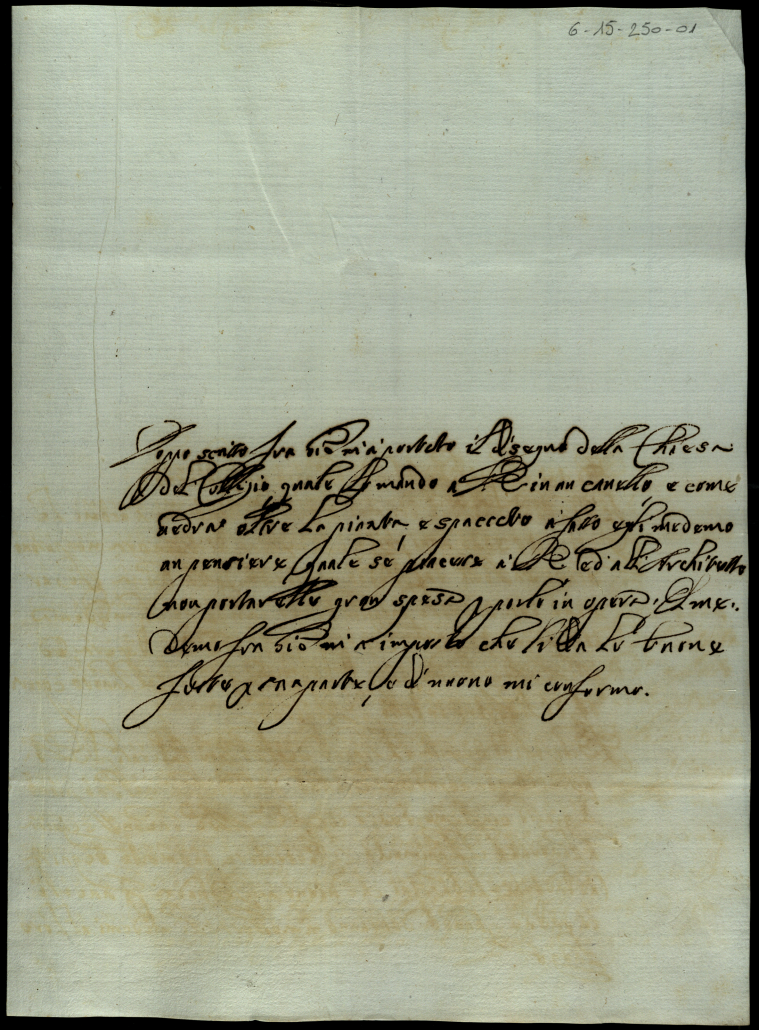 6-15-250-01
Dopo scritto fra Gio mi à portato il disegno della Chiesa
del Collegio quale le mando a in un canello, e come
vedrà oltre la pianta, e spaccato à fatto egli medemo
un pensiere quale se piacerà à ed all' Architetto
non portarebbe gran spesa p porlo in opera. Il me:
demo fra Gio mi à imposto che li dia le buone
feste p sua parte, e di nuovo mi confermo.